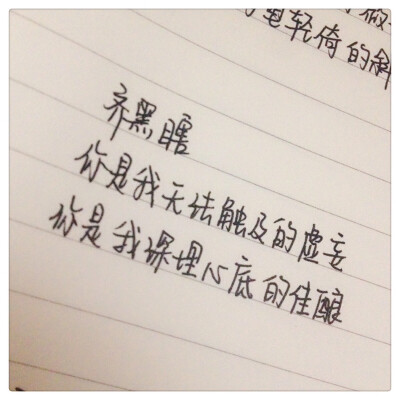 轻倚的斜
齐黑瞎
你是我无法触及的虚妄
你是我深埋心底的佳酿